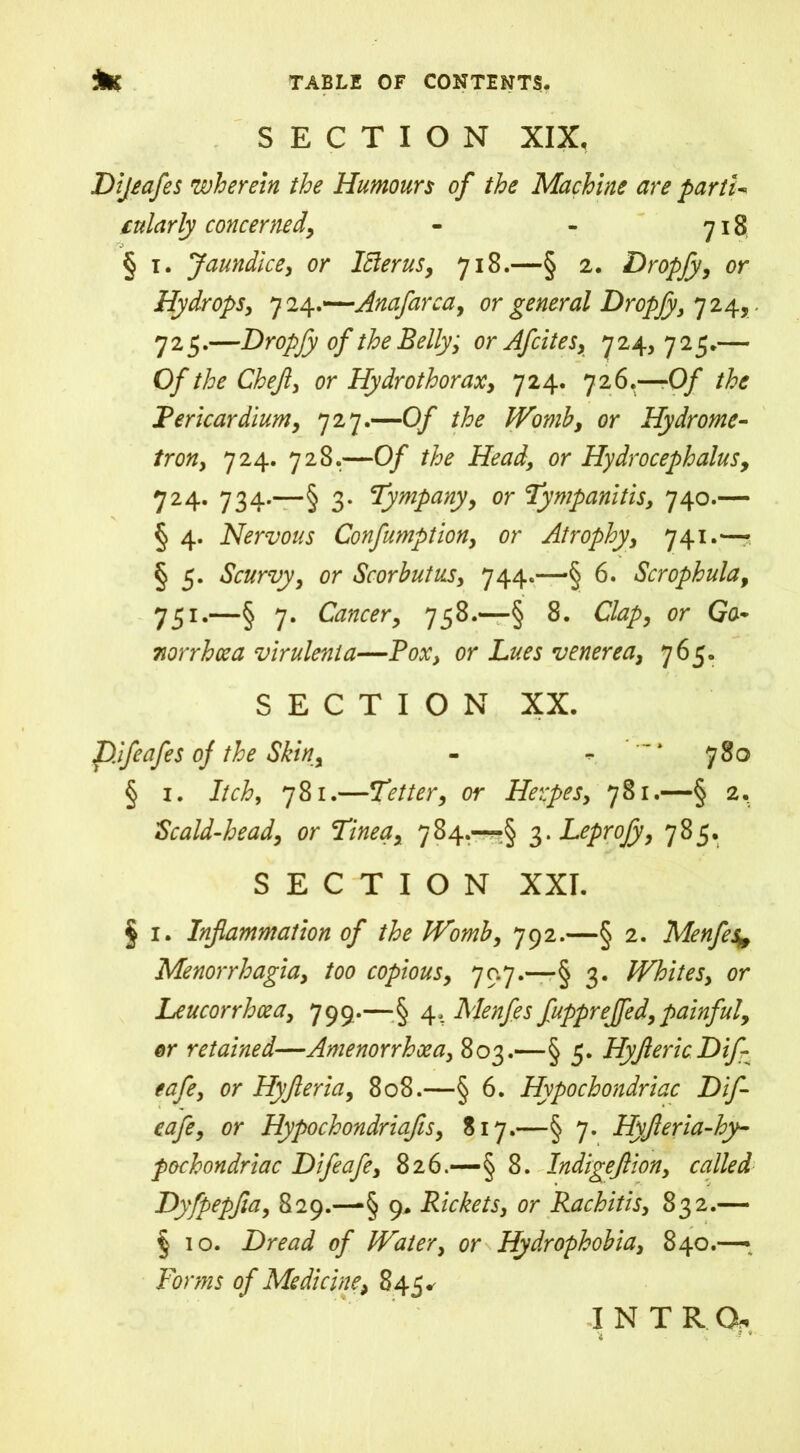 TABLE OF CONTENTS.
SECTION XIX,
Diſeaſes wherein the Humours of the Machine are parti-
cularly concerned, - - 718
§ 1. Jaundice, or Icterus, 718.—§ 2. Dropſy, or
Hydrops, 724.—Anaſarca, or general Dropſy, 724,
725.—Dropſy of the Belly; or Aſcites, 724, 725.—
Of the Cheſt, or Hydrothorax, 724. 726.—Of the
Pericardium, 727.—Of the Womb, or Hydrome-
tron, 724. 728.—Of the Head, or Hydrocephalus,
724. 734.—§ 3. Tympany, or Tympanitis, 740.—
§ 4. Nervous Conſumption, or Atrophy, 741.—
§ 5. Scurvy, or Scorbutus, 744.—§ 6. Scrophula,
751.—§ 7. Cancer, 758.—§ 8. Clap, or Go-
norrhœa virulenta—Pox, or Lues venerea, 765.
SECTION XX.
Diſeaſes of the Skin, - - 780
§ 1. Itch, 781.—Tetter, or Herpes, 781.—§ 2.
Scald-head, or Tinea, 784.—§ 3. Leproſy, 785.
SECTION XXI.
§ 1. Inflammation of the Womb, 792.—§ 2. Menſes,
Menorrhagia, too copious, 797.—§ 3. Whites, or
Leucorrhœa, 799.—§ 4. Menſes ſuppreſſed, painful,
or retained—Amenorrhœa, 803.—§ 5. Hyſteric Diſ-
eaſe, or Hyſteria, 808.—§ 6. Hypochondriac Diſ-
eaſe, or Hypochondriaſis, 817.—§ 7. Hyſteria-hy-
pochondriac Diſeaſe, 826.—§ 8. Indigeſtion, called
Dyſpepſia, 829.—§ 9. Rickets, or Rachitis, 832.—
§ 10. Dread of Water, or Hydrophobia, 840.—
Forms of Medicine, 845.
INTRO-